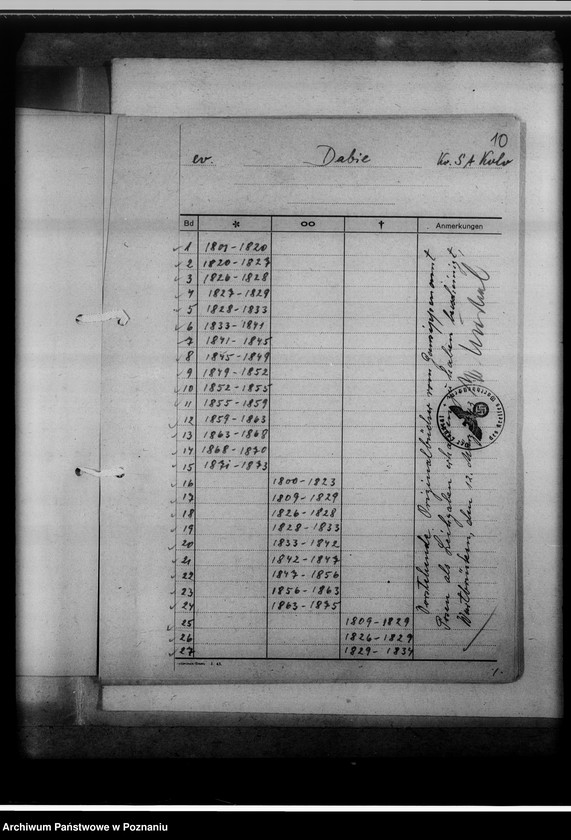 10
ev. Dabie Kr. S A Kolo
Bd * ∞ † Anmerkungen
1 1809-1820
2 1820-1827
3 1826-1828
4 1827-1829
5 1828-1833
6 1833-1841
7 1841-1845
8 1845-1849
9 1849-1852
10 1852-1855
11 1855-1859
12 1859-1863
13 1863-1868
14 1868-1870
15 1871-1873
16 1800-1823
17 1809-1829
18 1826-1828
19 1828-1833
20 1833-1842
21 1842-1847
22 1847-1856
23 1856-1863
24 1863-1875
25 1809-1829
26 1826-1829
27 1829-1834
Vorstehende Originalbücher vom Gausippenamt
Posen als Leihgaben erhalten zu haben bescheinigt,
Wartbrücken, den 12. März
1.
Archiwum Państwowe w Poznaniu